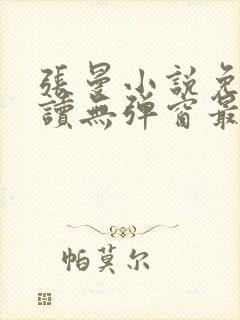 張曼小説免
讀無彈窗最
帕莫尔